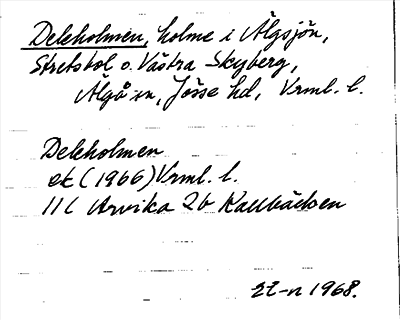 Deleholmen, holme i Älgsjön,
Stretstol o. Västra Skyberg,
Älgå sn, Jösse hd, Vrml. l.
Deleholmen
ek (1966) Vrml. l.
11C Arvika 2b Kallbäcken
1968.